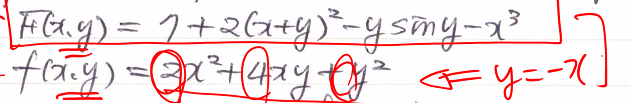 F(x,y) = 1+2(x+y)²-y siny-x³
f(x,y) = 2x²+4xy+y² ⇐ y=-x